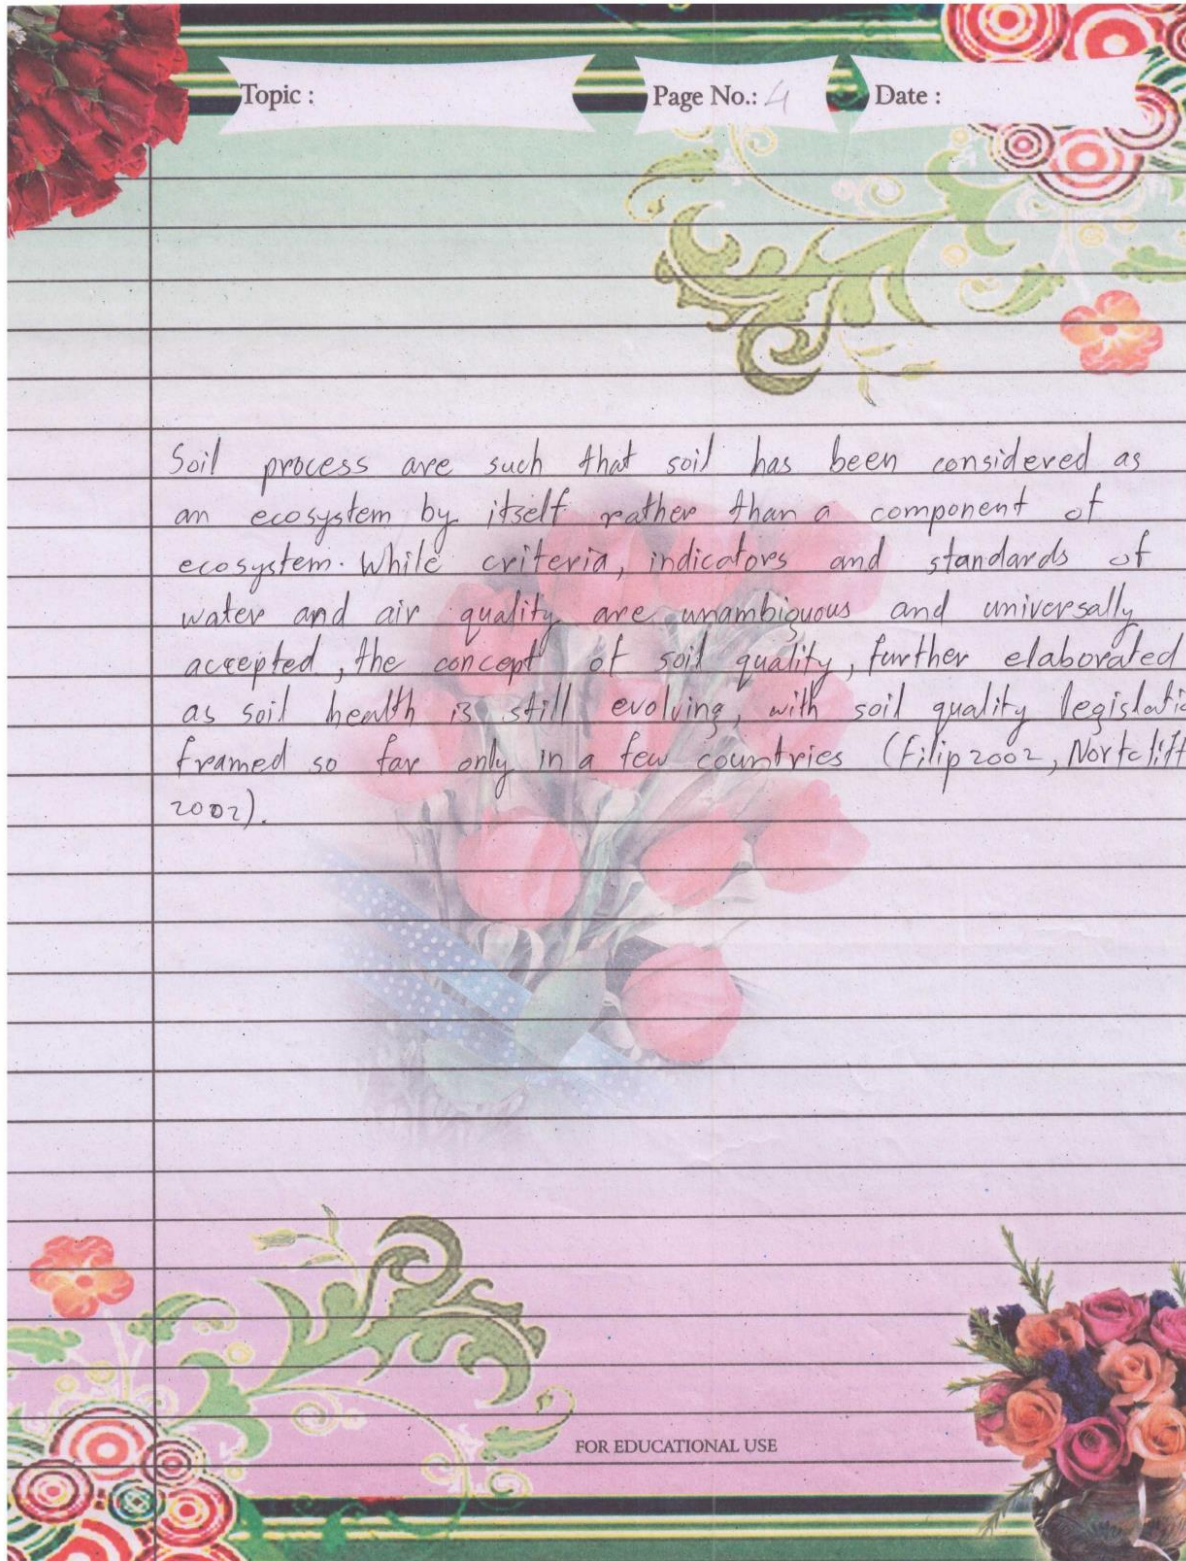 Topic :
Page No.: 4
Date :
Soil process are such that soil has been considered as
an ecosystem by itself rather than a component of
ecosystem. While criteria, indicators and standards of
water and air quality are unambiguous and universally
accepted, the concept of soil quality, further elaborated
as soil health is still evolving, with soil quality legislatio
framed so far only in a few countries (Filip 2002, Nortcliff
2002).
FOR EDUCATIONAL USE